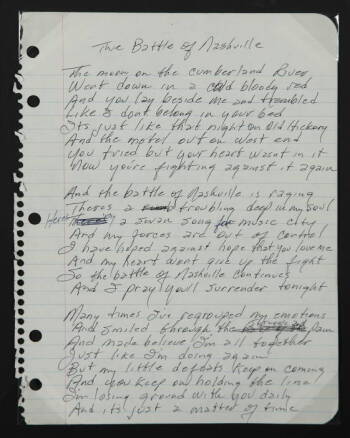 The Battle of Nashville
The moon on the cumberland River
Went down in a cold bloody red
And you lay beside me and trembled
Like I dont belong in your bed
Its just like that night on Old Hickory
And the motel out on west end
You tried but your heart wasnt in it
Now you're fighting against it again
And the battle of Nashville is raging
Theres a troubling deep in my soul
Heres a swan song for music city
And my forces are out of control
I have hoped against hope that you love me
And my heart wont give up the fight
So the battle of Nashville continues
And I pray you'll surrender tonight
Many times I've regrouped my emotions
And smiled through the pain
And made believe I'm all together
Just like I'm doing again
But my little defeats keep on coming
And you keep on holding the line
I'm losing ground with you daily
And its just a matter of time